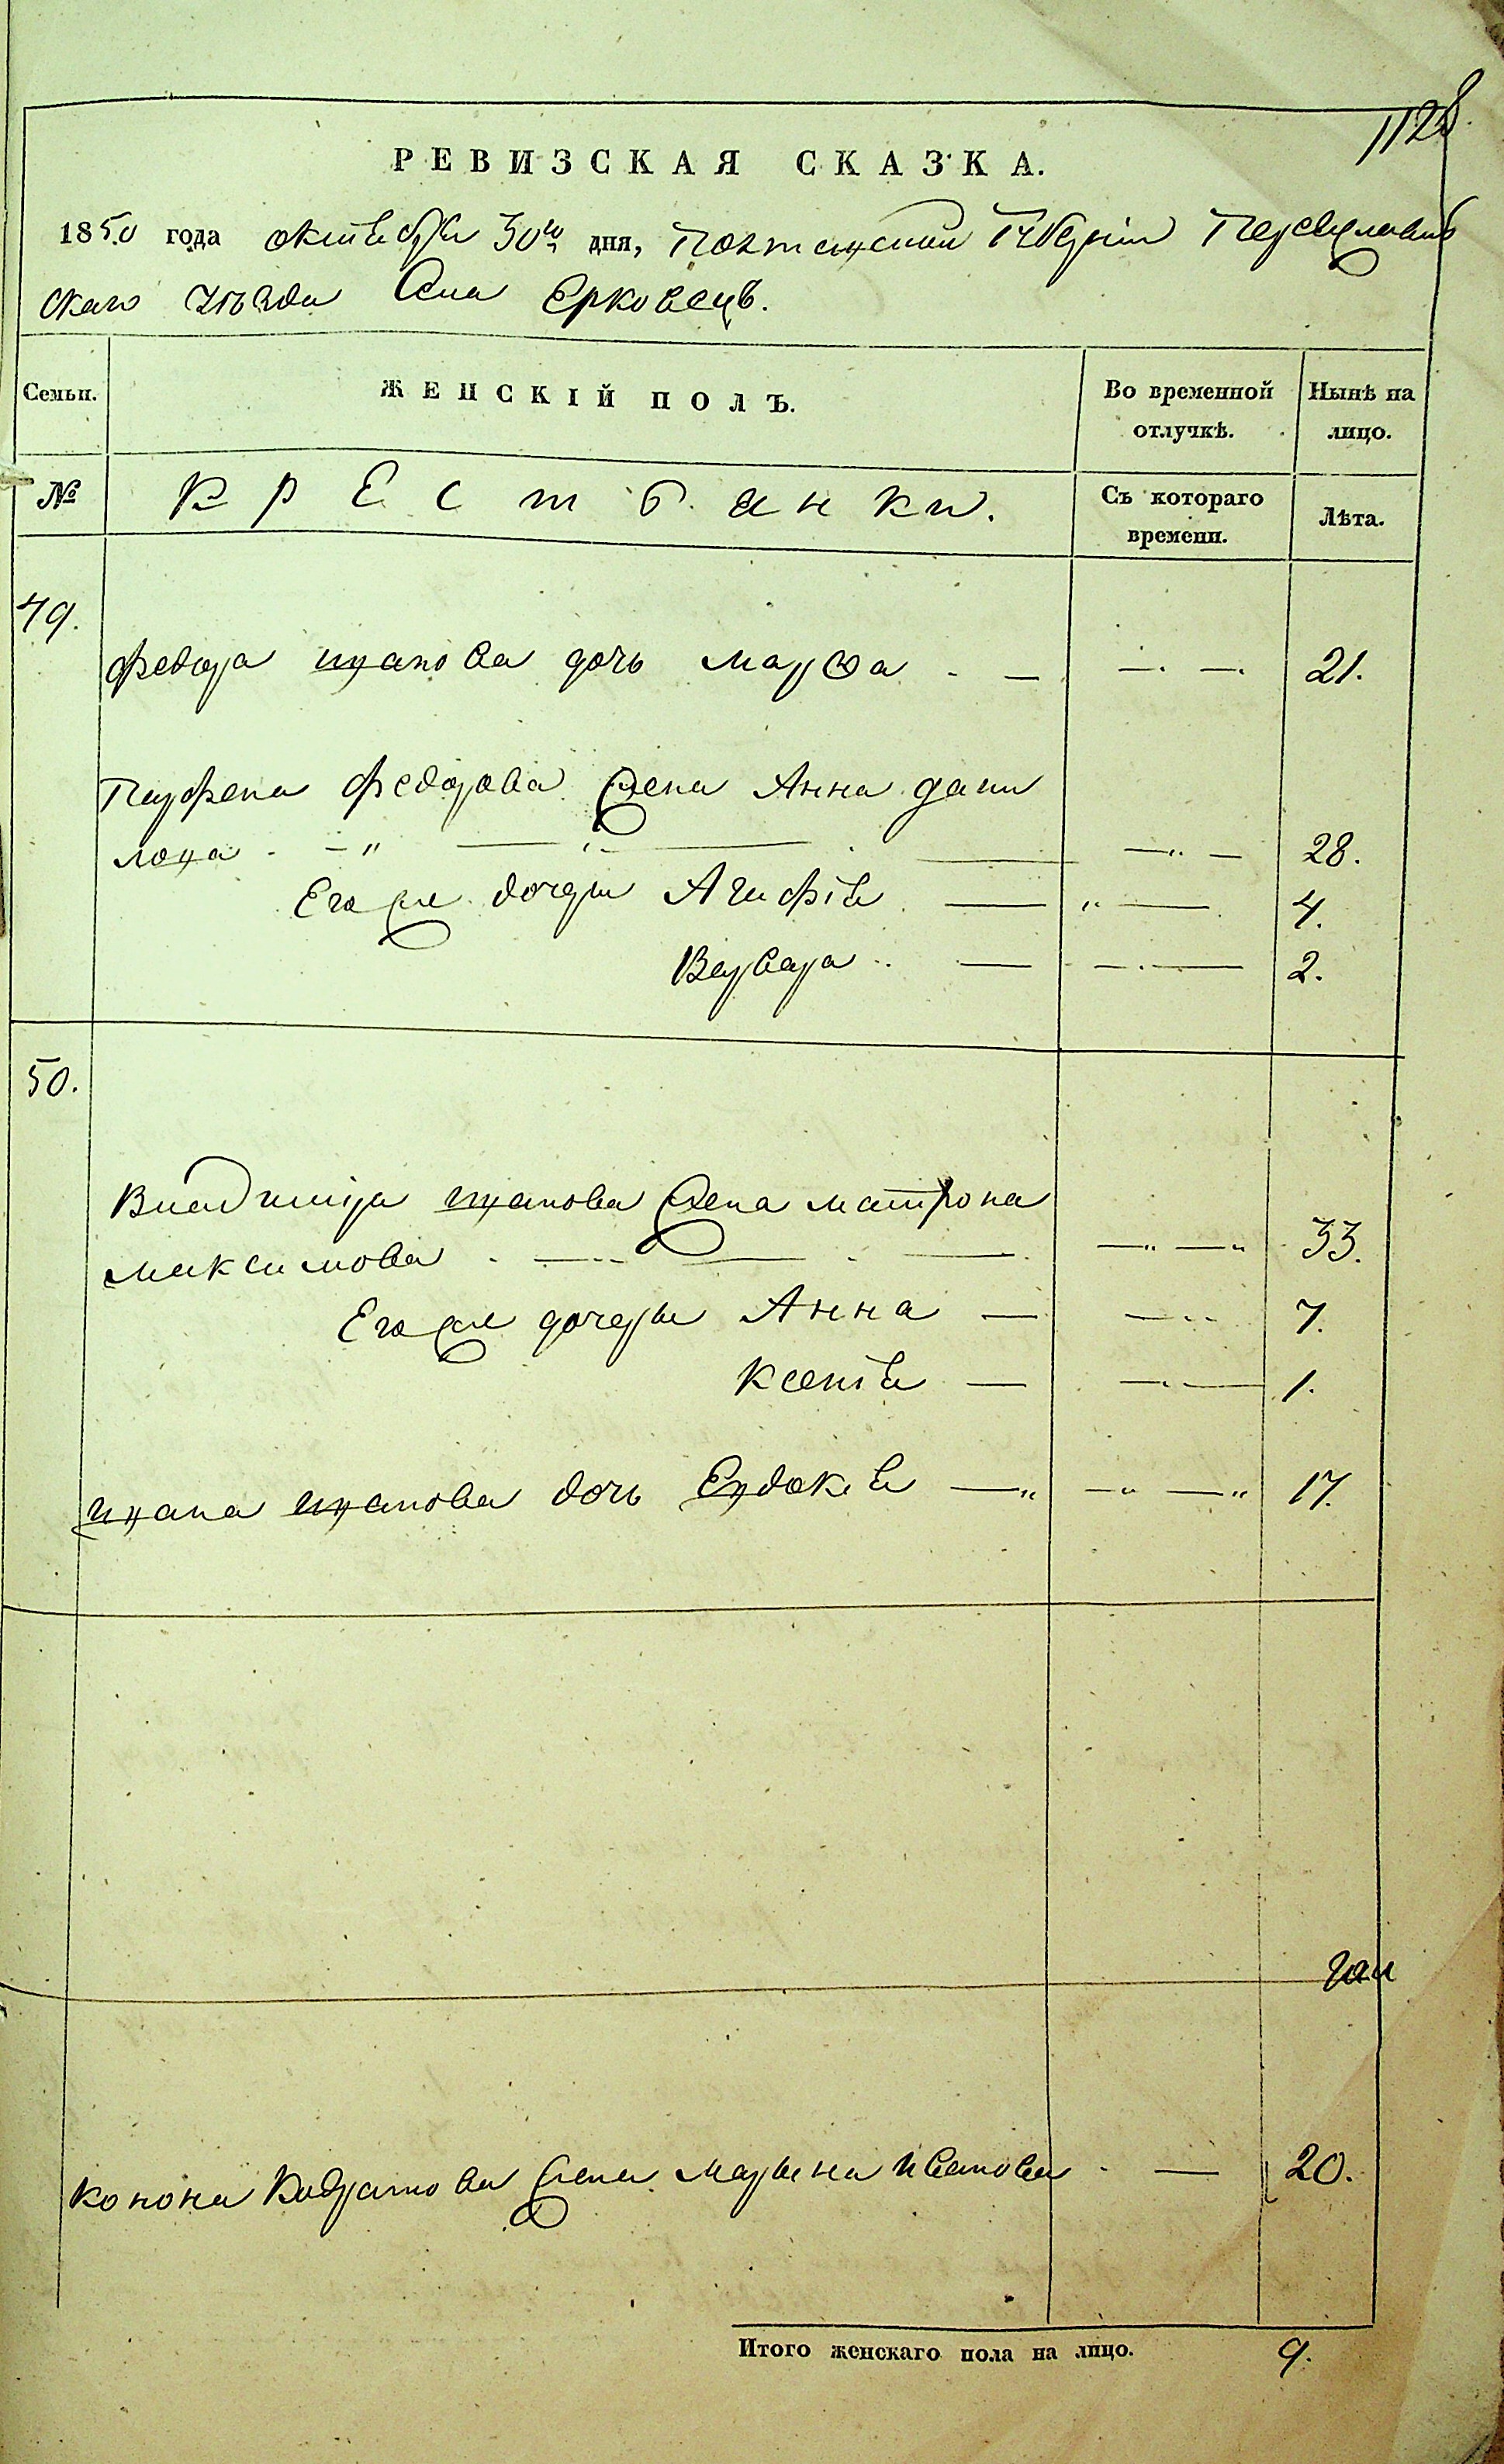 1128
РЕВИЗСКАЯ СКАЗКА.
1850 года октября 30го дня, Полтавской Губерніи Переяславъ
скаго уѣзда Села Ерковецъ.
Семьи.
ЖЕНСКІЙ ПОЛЪ.
Во временной отлучкѣ.
Нынѣ на лицо.
№
Крестьянки.
Съ котораго времени.
Лѣта.
49.
Федора Иванова дочь Марѳа 21.
Парфена Федорова жена Анна Дани
лова 28.
Его же дочери Агафія 4.
Варвара 2.
50.
Владимира Иванова жена Матрона
Максимова 33.
Его же дочери Анна 7.
Ксенія 1.
Ивана Иванова дочь Евдокія 17.
Конона Кондратова жена Марьина Иванова 20.
Итого женскаго пола на лицо. 9.